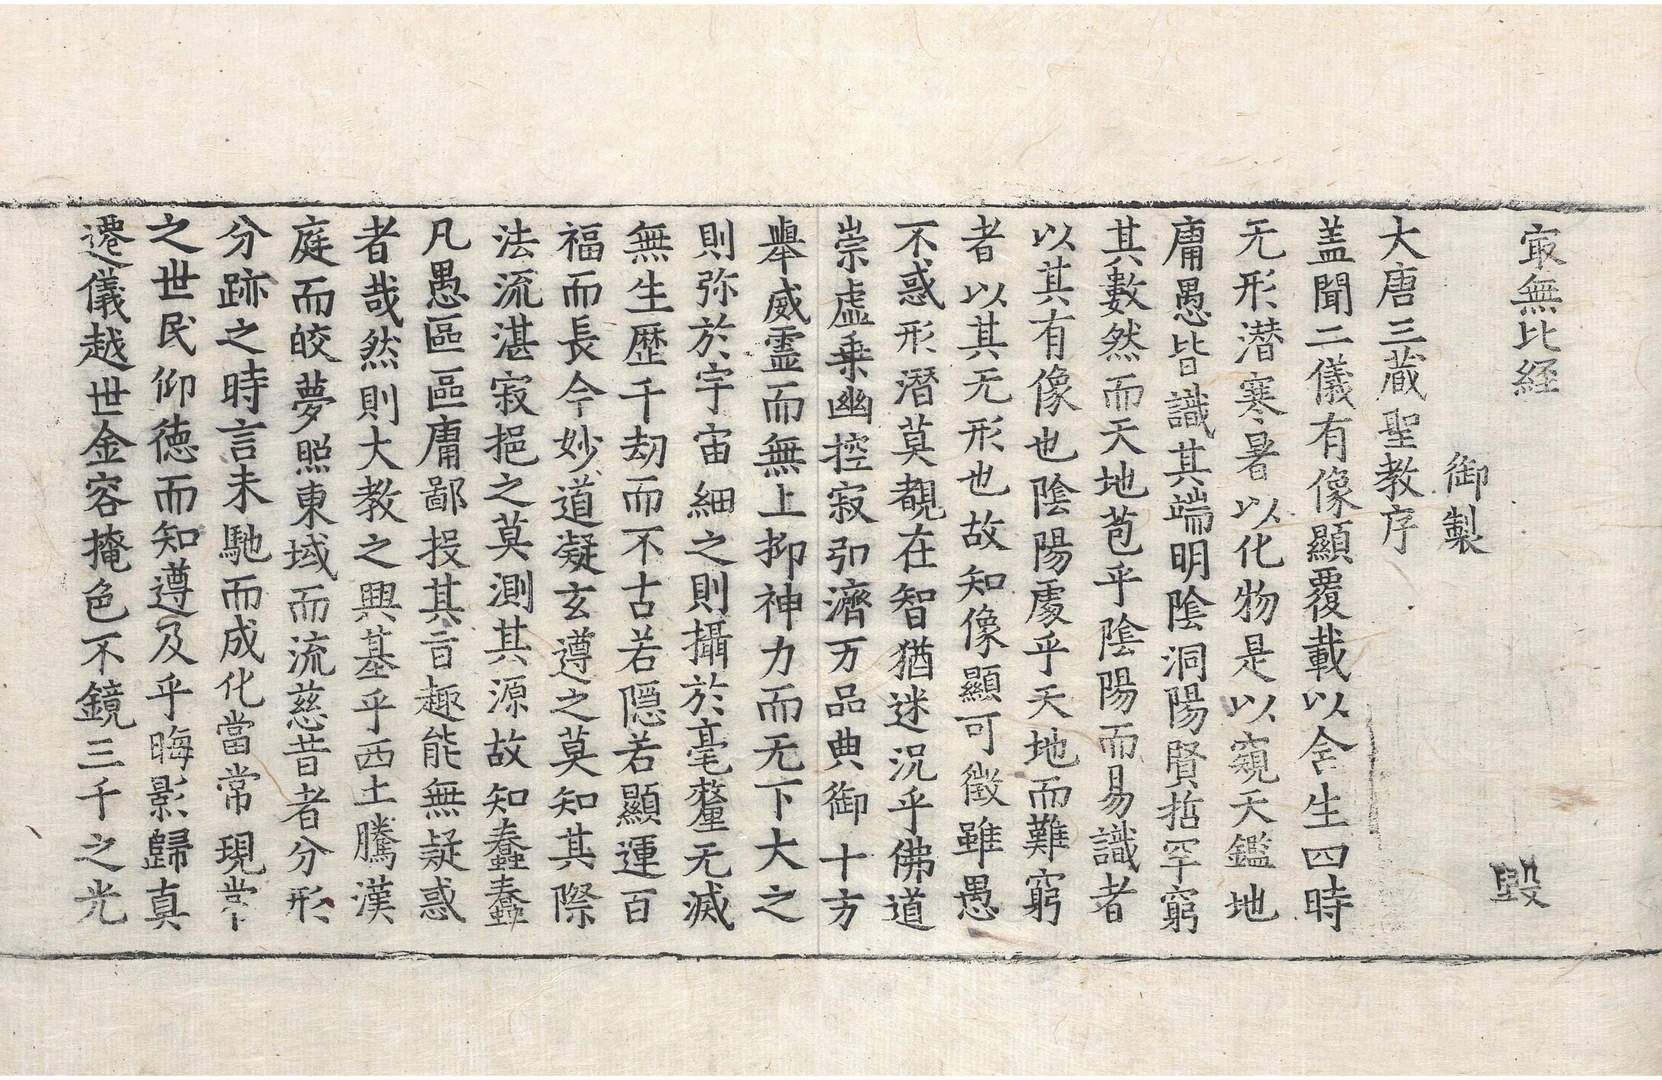 㝡無比経 毀
御製
大唐三蔵聖教序
盖聞二儀有像顯覆載以含生四時
无形潜寒暑以化物是以窺天鑑地
庸愚皆識其端明陰洞陽賢哲罕窮
其數然而天地苞乎陰陽而易識者
以其有像也陰陽處乎天地而難窮
者以其无形也故知像顯可徵雖愚
不惑形潛莫覩在智猶迷況乎佛道
崇虛乗幽控寂弘濟万品典御十方
舉威靈而無上抑神力而无下大之
則弥於宇宙細之則攝於毫釐无滅
無生歴千劫而不古若隱若顯運百
福而長今妙道凝玄遵之莫知其際
法流湛寂挹之莫測其源故知蠢蠢
凡愚區區庸鄙投其旨趣能無疑惑
者哉然則大教之興基乎西土騰漢
庭而皎夢照東域而流慈昔者分形
分跡之時言未馳而成化當常現常
之世民仰徳而知遵及乎晦影歸真
遷儀越世金容掩色不鏡三千之光